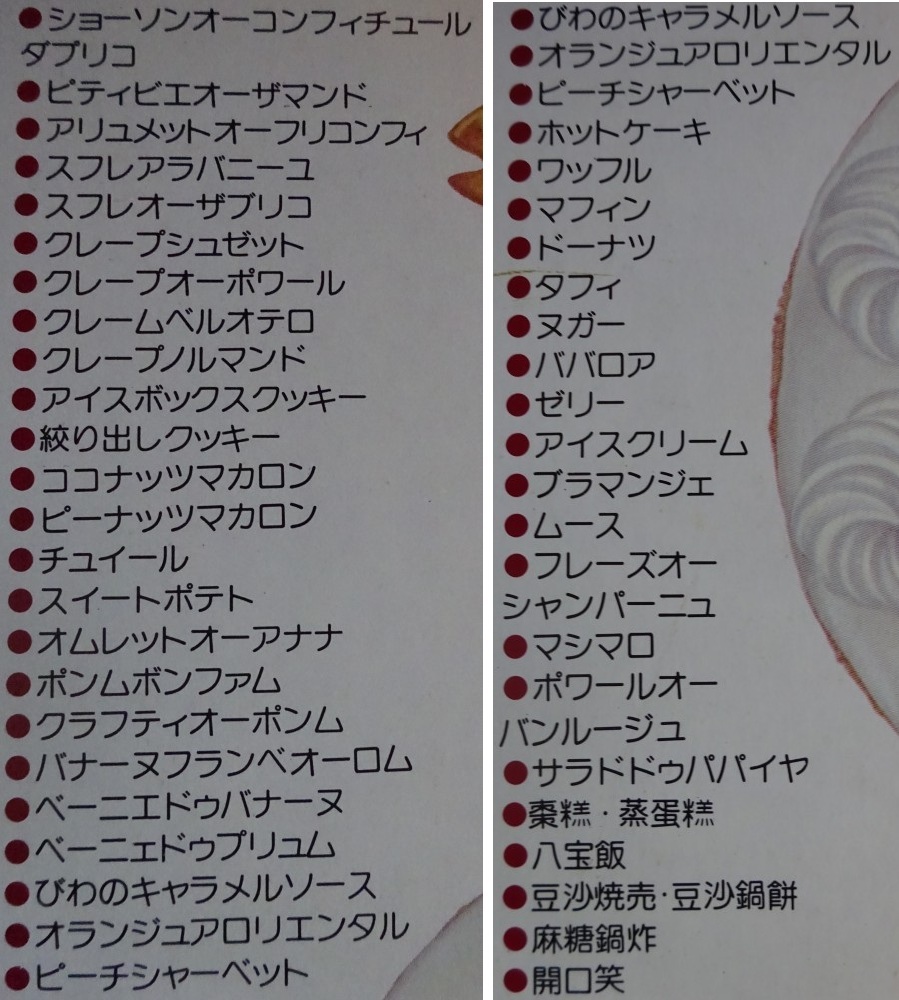 ●ショーソンオーコンフィチュール
ダブリコ
●ピティビエオーザマンド
●アリュメットオーフリコンフィ
●スフレアラバニーユ
●スフレオーザブリコ
●クレープシュゼット
●クレープオーポワール
●クレームベルオテロ
●クレープノルマンド
●アイスボックスクッキー
●絞り出しクッキー
●ココナッツマカロン
●ピーナッツマカロン
●チュイール
●スイートポテト
●オムレットオーアナナ
●ポンムボンファム
●クラフティオーポンム
●バナーヌフランベオーロム
●ベーニエドゥバナーヌ
●ベーニェドゥプリュム
●びわのキャラメルソース
●オランジュアロリエンタル
●ピーチシャーベット
●びわのキャラメルソース
●オランジュアロリエンタル
●ピーチシャーベット
●ホットケーキ
●ワッフル
●マフィン
●ドーナツ
●タフィ
●ヌガー
●ババロア
●ゼリー
●アイスクリーム
●ブラマンジェ
●ムース
●フレーズオー
シャンパーニュ
●マシマロ
●ポワールオー
バンルージュ
●サラドドゥパパイヤ
●棗糕・蒸蛋糕
●八宝飯
●豆沙焼売・豆沙鍋餅
●麻糖鍋炸
●開口笑